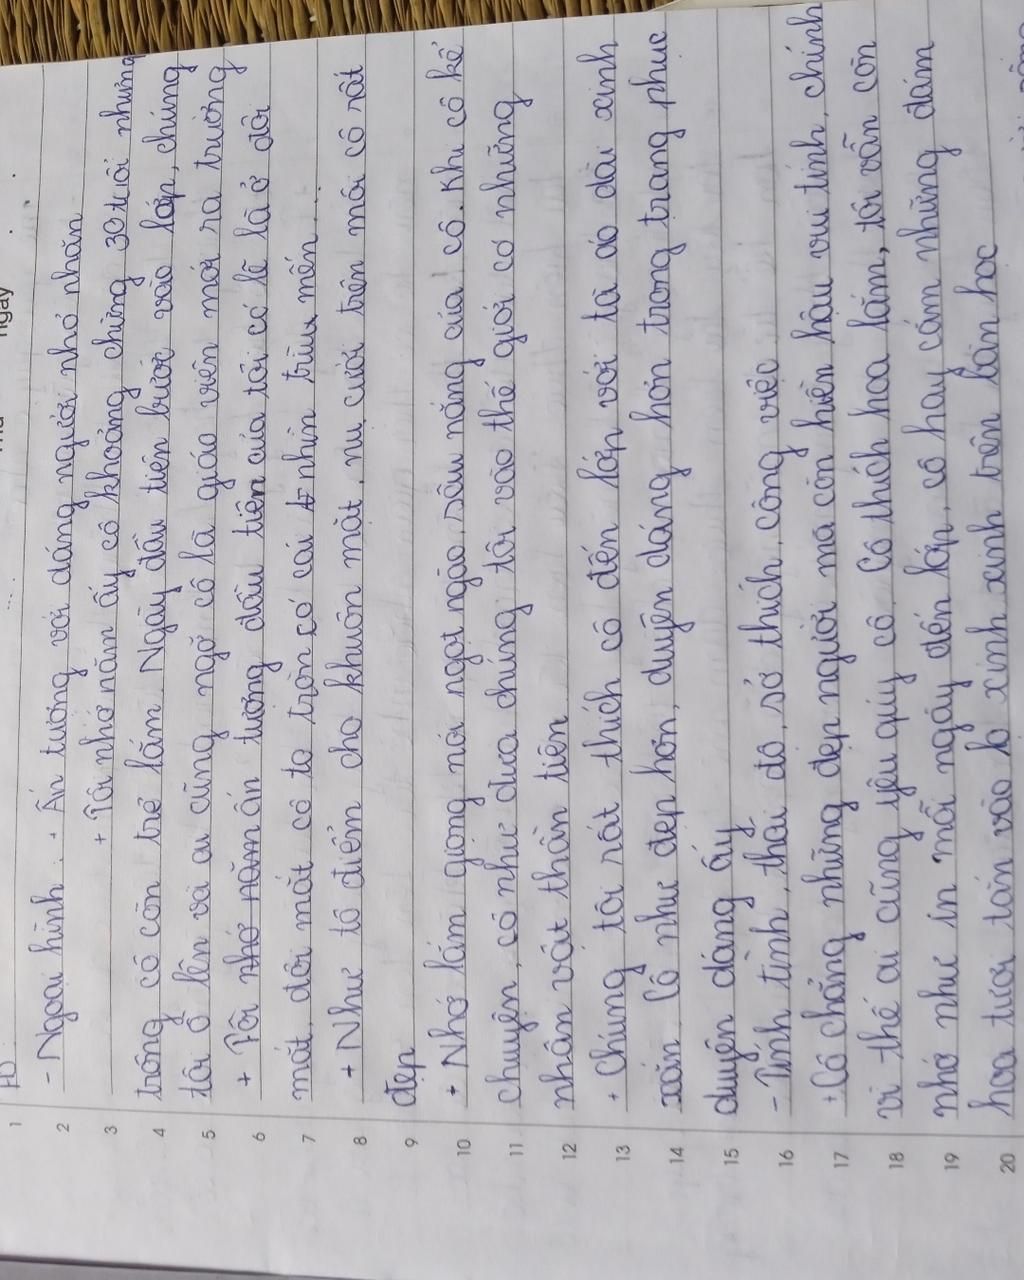 - Ngoại hình: + Ấn tượng với dáng người nhỏ nhắn
+ Tôi nhớ năm ấy cô khoảng chừng 30 tuổi nhưng
trông cô còn trẻ lắm. Ngày đầu tiên bước vào lớp, chúng
tôi ồ lên vì ai cũng ngỡ cô là giáo viên mới ra trường
+ Tôi nhớ năm ấn tượng đầu tiên của tôi có lẽ là ở đôi
mắt, đôi mắt cô to tròn có cái nhìn trìu mến...
+ Như tô điểm cho khuôn mặt, nụ cười trên môi cô rất
đẹp
+ Nhớ lắm giọng nói ngọt ngào, sâu nắng của cô. Khi cô kể
chuyện, cô như đưa chúng tôi vào thế giới có những
nhân vật thần tiên
+ Chúng tôi rất thích cô đến lớp với tà áo dài xinh
xắn. Cô như đẹp hơn, duyên dáng hơn trong trang phục
duyên dáng ấy
- Tính tình, thái độ, sở thích, công việc
+ Cô chẳng những đẹp người mà còn hiền hậu vui tính, chính
vì thế ai cũng yêu quý cô. Cô thích hoa lắm, tôi vẫn còn
nhớ như in mỗi ngày đến lớp, cô hay cắm những đám
hoa tươi tắn vào lọ xinh xinh trên bàn học
ngày